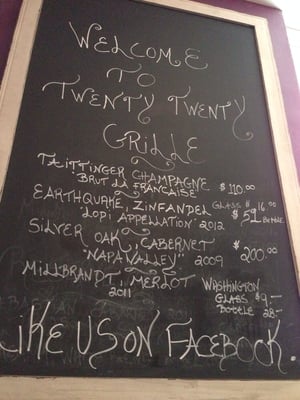 WELCOME
TO
TWENTY TWENTY
GRILLE
TAITTINGER CHAMPAGNE
"BRUT LA FRANCAISE" $110.00
EARTHQUAKE, ZINFANDEL GLASS $16.00
"LODI APPELLATION" 2012 $52 BOTTLE
SILVER OAK, CABERNET
"NAPA VALLEY" 2009 $200.00
MILLBRANDT, MERLOT WASHINGTON
2011 GLASS $9.-
BOTTLE 28.-
LIKE US ON FACEBOOK.